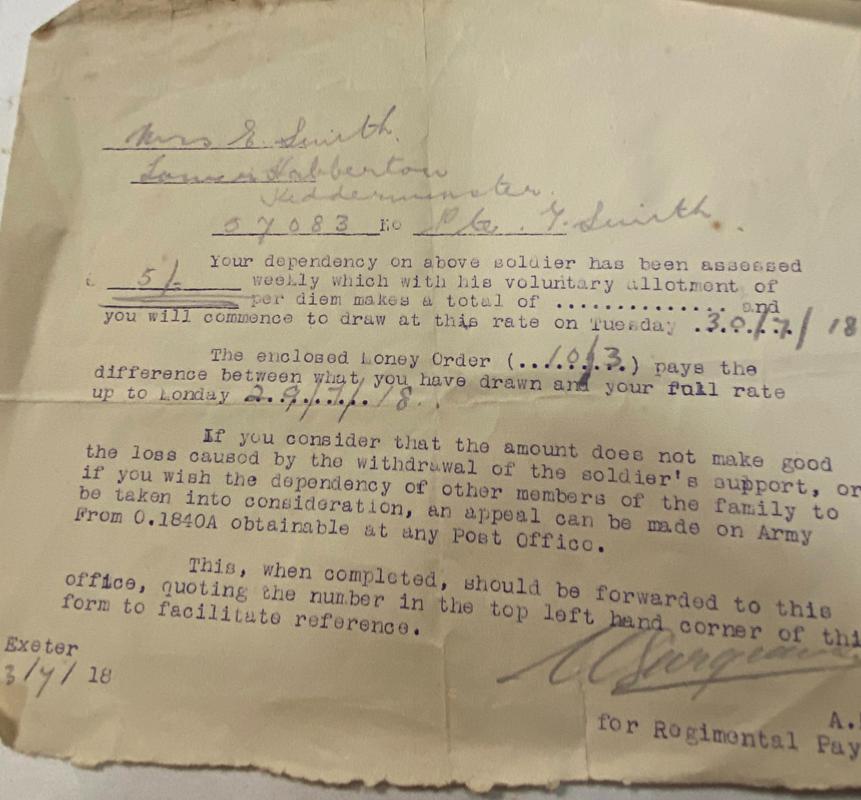 Mrs E. Smith.
Lower Habberton
Kidderminster.
57083 Re Pte. F. Smith.
Your dependency on above soldier has been assessed
5/- weekly which with his voluntary allotment of
per diem makes a total of .............. and
you will commence to draw at this rate on Tuesday .30/7/18
The enclosed Money Order (...10/3.) pays the
difference between what you have drawn and your full rate
up to Monday 29/7/18..
If you consider that the amount does not make good
the loss caused by the withdrawal of the soldier's support, or
if you wish the dependency of other members of the family to
be taken into consideration, an appeal can be made on Army
From O.1840A obtainable at any Post Office.
This, when completed, should be forwarded to this
office, quoting the number in the top left hand corner of thi
form to facilitate reference.
Exeter
3/7/18
A.
for Regimental Pay